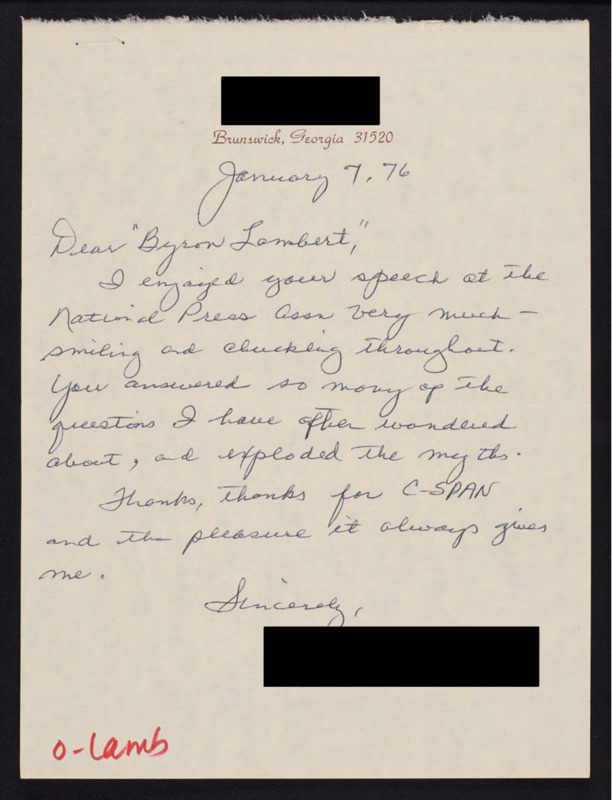 Brunswick, Georgia 31520
January 7, 76
Dear "Byron Lambert,"
I enjoyed your speech at the
National Press Assn very much –
smiling and chuckling throughout.
You answered so many of the
questions I have often wondered
about, and exploded the myths.
Thanks, thanks for C-SPAN
and the pleasure it always gives
me.
Sincerely,
O-Lamb